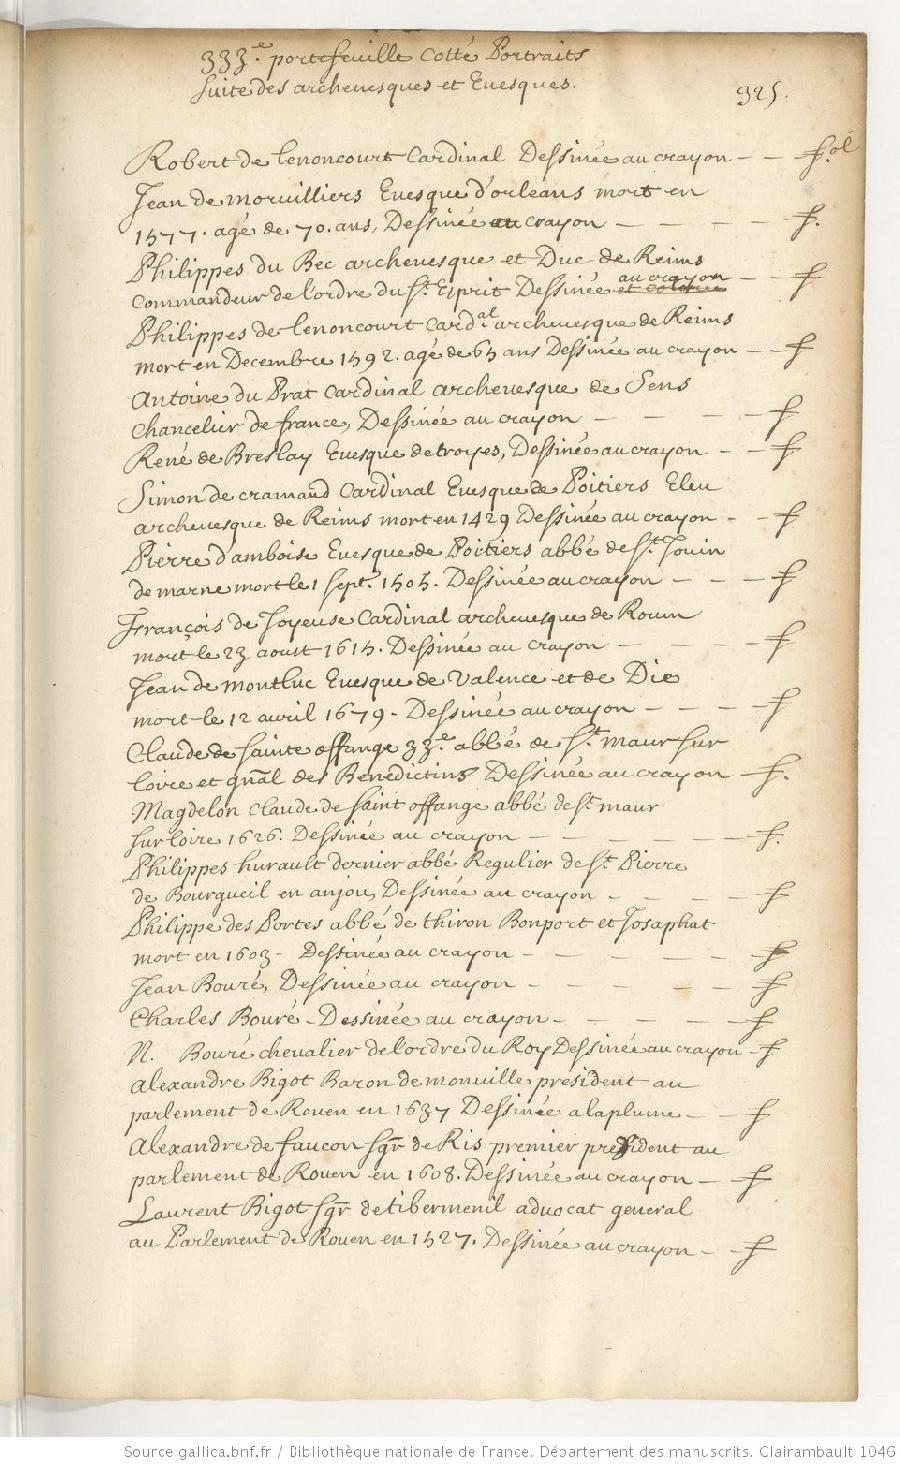 333.e portefeuille cotté Portraits
suite des archeuesques et Euesques.
925.
Robert de Lenoncourt Cardinal Dessinée au crayon - - f.ol
Jean de moruilliers Euesque d'orleans mort en
1577. agé de 70. ans, Dessinée au crayon - - - - f.
Philippes du Bec archeuesque et Duc de Reims
commandeur de l'ordre du St. Esprit Dessinée au crayon - f
et colorée
Philippes de Lenoncourt Card.al archeuesque de Reims
mort en Decembre 1592. agé de 65 ans Dessinée au crayon - - f
antoine du Prat Cardinal archeuesque de Sens
chancelier de france, Dessinée au crayon - - - - f
René de Breslay Euesque de troyes, Dessinée au crayon - - f
Simon de cramaud Cardinal Euesque de Poitiers Eleu
archeuesque de Reims mort en 1429 Dessinée au crayon - - f
Pierre d'amboise Euesque de Poitiers abbé de St. Jouin
de marne mort le 1 sept. 1505. Dessinée au crayon - - - f
François de Joyeuse Cardinal archeuesque de Rouen
mort le 23 aoust 1615. Dessinée au crayon - - - f
Jean de montluc Euesque de Valence et de Die
mort le 12 auril 1679 - Dessinée au crayon - - - - f
Claude de sainte offange 33.e abbé de St. maur sur
loire et gnal des Benedictins Dessinée au crayon - f.
Magdelon claude de saint offange abbé de St. maur
sur loire 1626. Dessinée au crayon - - - - - f.
Philippes hurault dernier abbé Regulier de St. Pierre
de Bourgueil en anjou, Dessinée au crayon - - - - f
Philippe des Portes abbé de thiron Bonport et Josaphat
mort en 1603 - Dessinée au crayon - - - - - f
Jean Bouré, Dessinée au crayon - - - - - f
Charles Bouré - Dessinée au crayon - - - - - f
N. Bouré cheualier de l'ordre du Roy Dessinée au crayon - f
alexandre Bigot Baron de monuille president au
parlement de Rouen en 1637 Dessinée a la plume - - f
alexandre de faucon sgr de Ris premier president au
parlement de Rouen en 1608. Dessinée au crayon - - f
Laurent Bigot sgr de tibermenil aduocat general
au Parlement de Rouen en 1527. Dessinée au crayon - - f
Source gallica.bnf.fr / Bibliothèque nationale de France. Département des manuscrits. Clairambault 1046